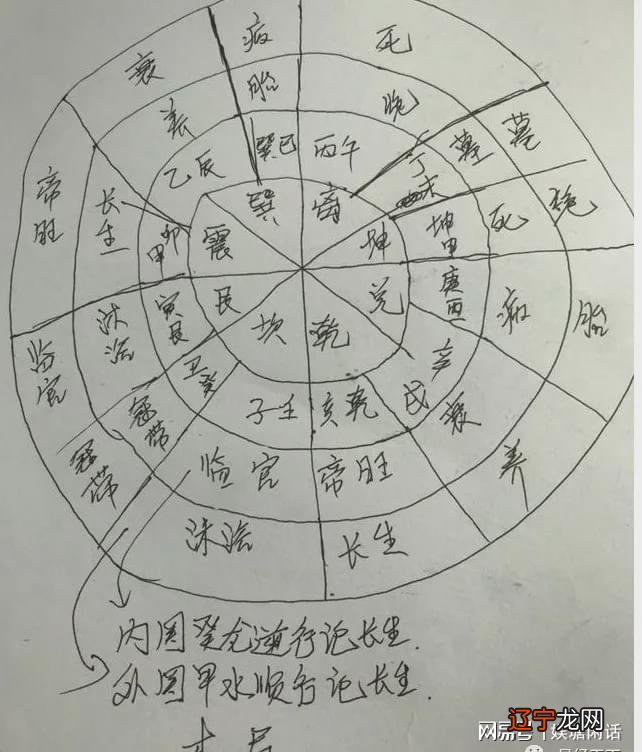 衰
病
死
养
胎
绝
墓
墓
绝
帝旺
长生
乙辰
巽巳
丙午
丁未
死
震
巽
离
坤
坤申
甲卯
艮
坎
乾
兑
庚酉
病
胎
临官
沐浴
寅艮
丑癸
子壬
亥乾
辛戌
衰
养
冠带
冠带
临官
帝旺
沐浴
长生
内圈癸龙逆行记长生.
外圈甲水顺行记长生.
木局
搜狐号@娱塘闲话
辽宁龙网